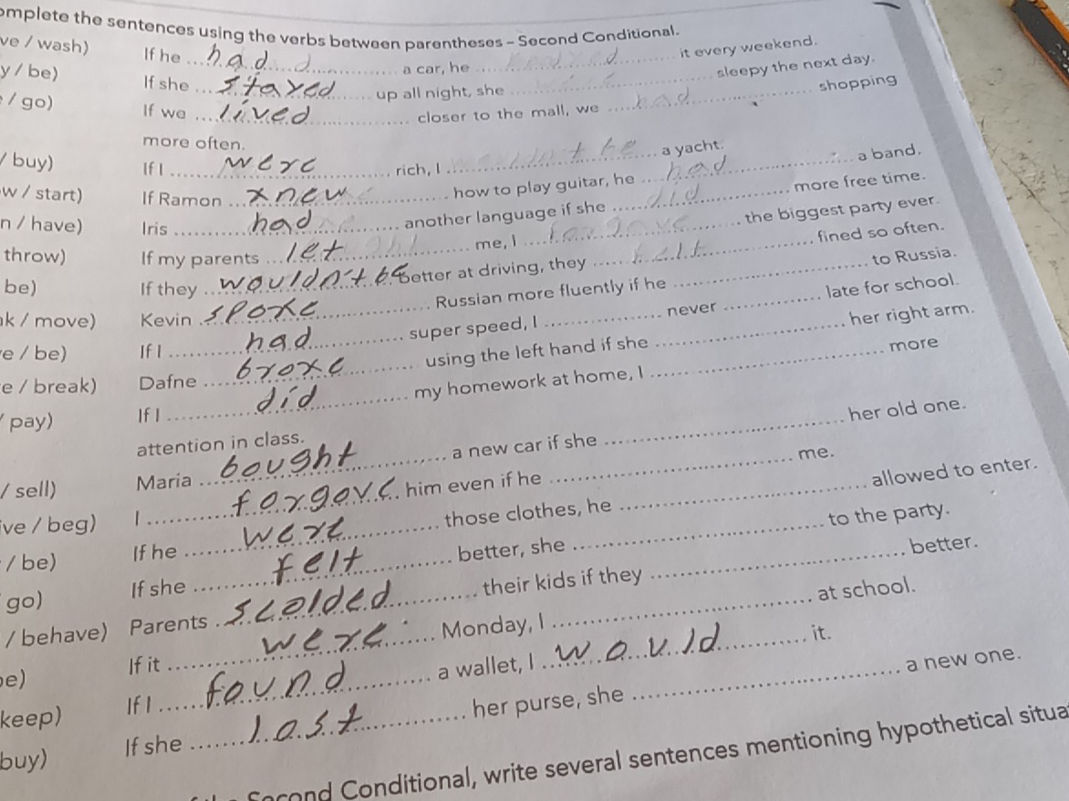 omplete the sentences using the verbs between parentheses – Second Conditional.
ve / wash) If he ... had ... a car, he ... it every weekend.
y / be) If she ... stayed ... up all night, she ... sleepy the next day.
/ go) If we ... lived ... closer to the mall, we ... had ... shopping
more often.
/ buy) If I ... were ... rich, I ... a yacht.
w / start) If Ramon ... xnew ... how to play guitar, he ... had ... a band.
n / have) Iris ... had ... another language if she ... did ... more free time.
throw) If my parents ... let ... me, I ... the biggest party ever.
be) If they ... wouldn't be better at driving, they ... felt ... fined so often.
ak / move) Kevin spoxe ... Russian more fluently if he ... to Russia.
e / be) If I ... had ... super speed, I ... never ... late for school.
e / break) Dafne ... broxe ... using the left hand if she ... her right arm.
/ pay) If I ... did ... my homework at home, I ... more
attention in class.
/ sell) Maria ... bought ... a new car if she ... her old one.
ive / beg) I ... forgove ... him even if he ... me.
/ be) If he ... were ... those clothes, he ... allowed to enter.
go) If she ... felt ... better, she ... to the party.
/ behave) Parents ... scolded ... their kids if they ... better.
be) If it ... were ... Monday, I ... at school.
keep) If I ... found ... a wallet, I ... would ... it.
buy) If she ... lost ... her purse, she ... a new one.
Second Conditional, write several sentences mentioning hypothetical situa